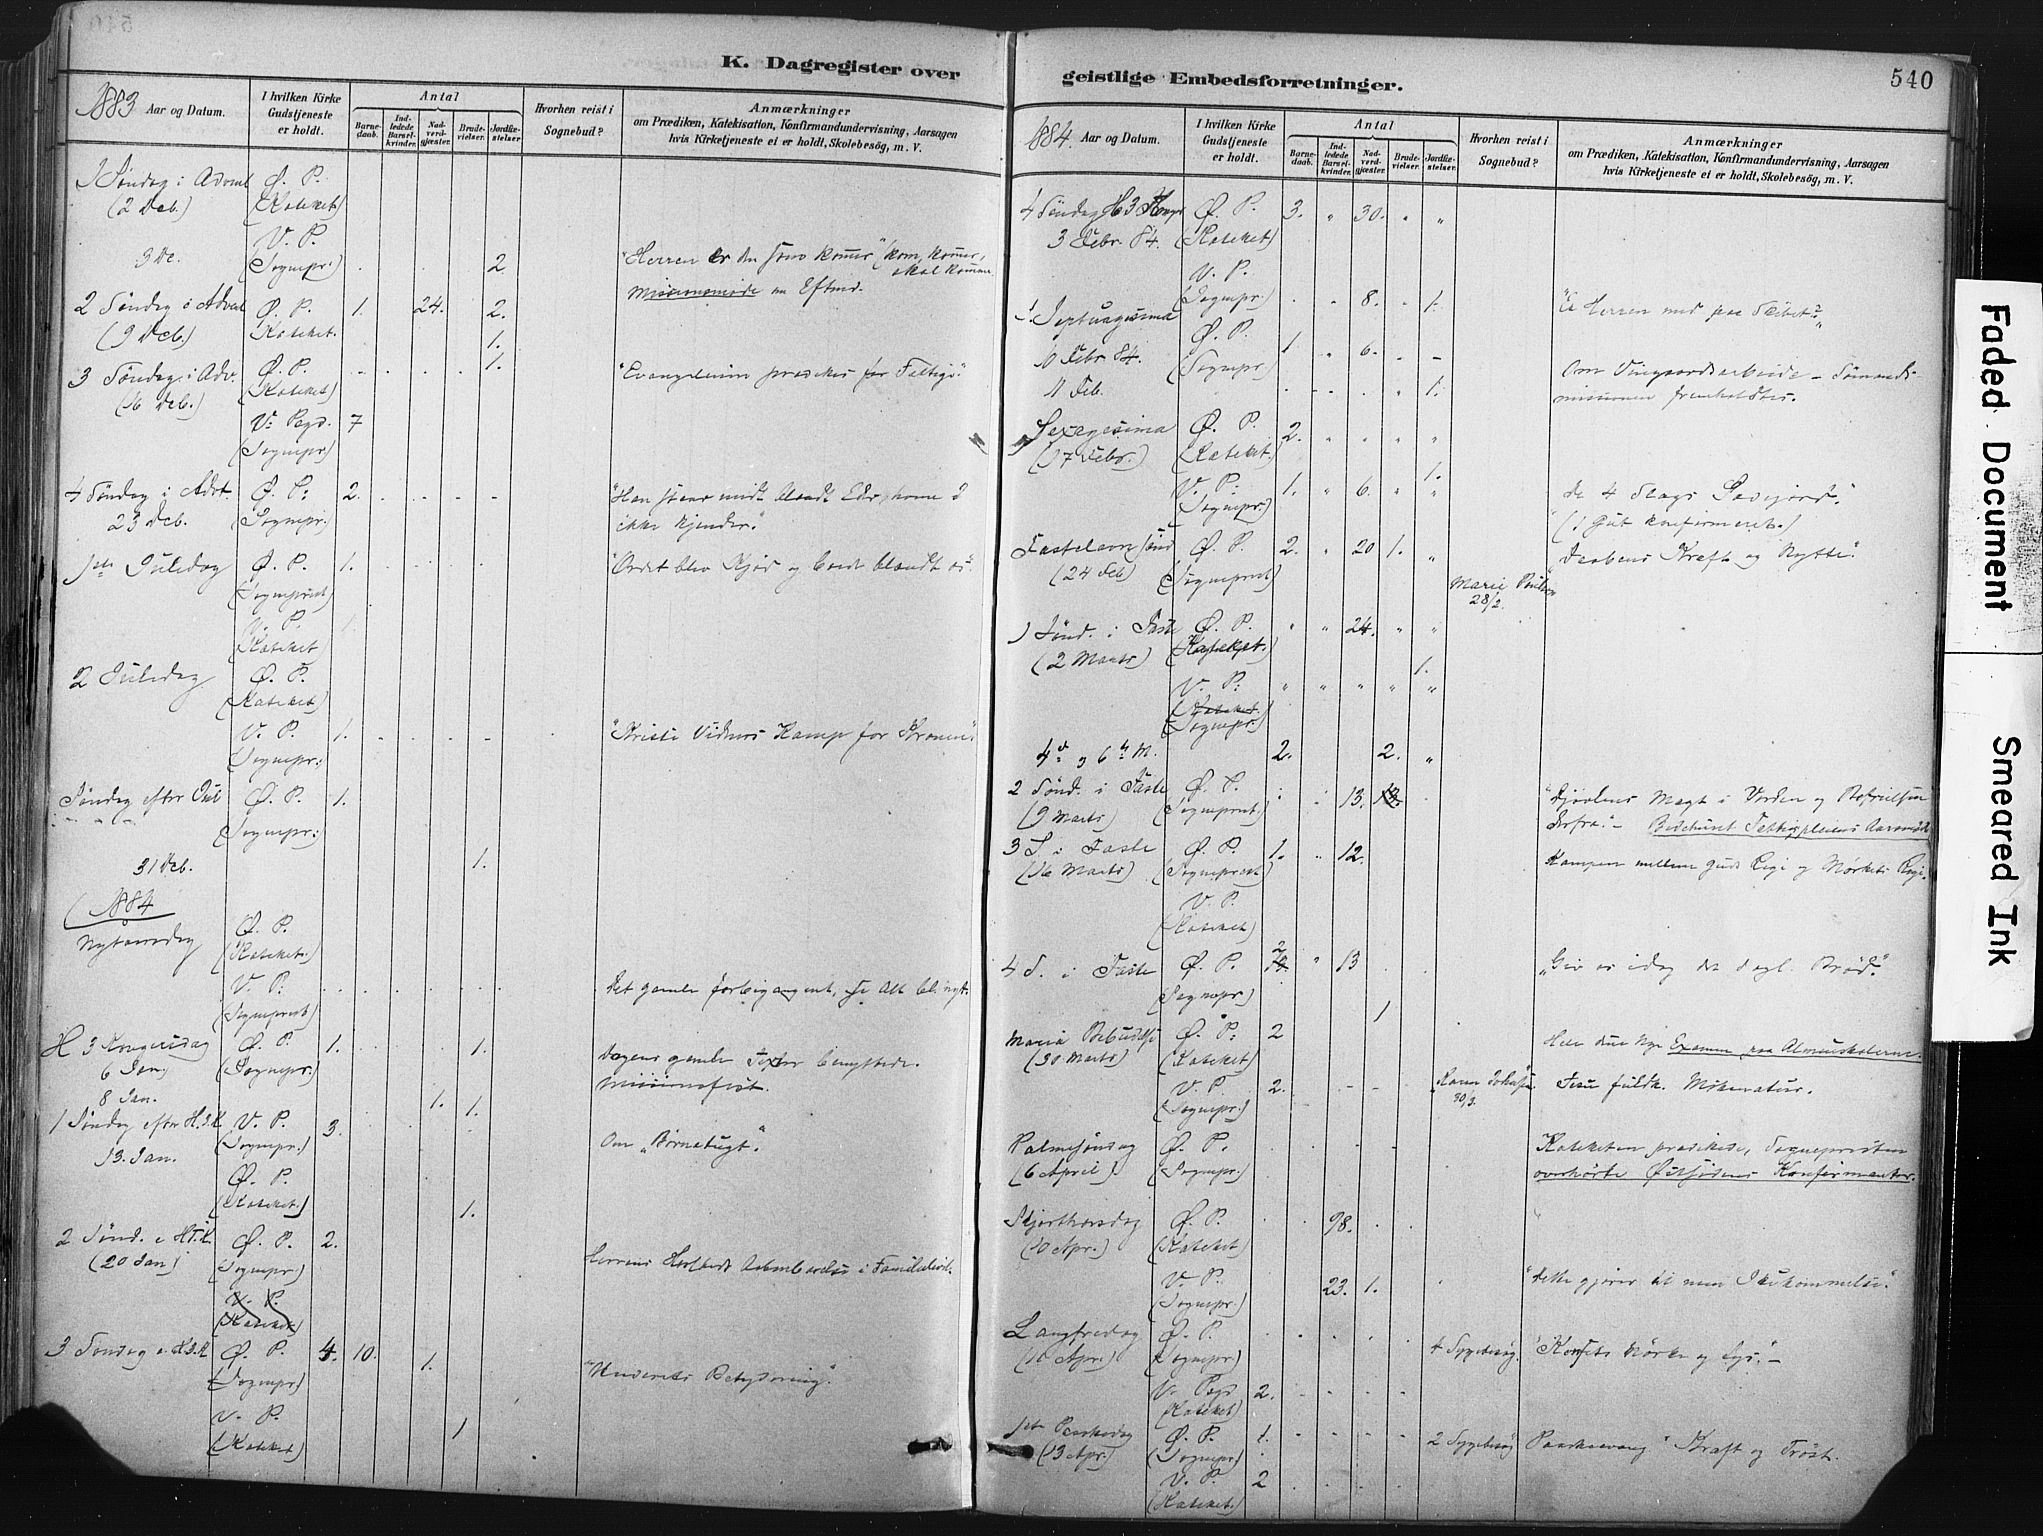 K. Dagregister over
1883 Aar og Datum.
I hvilken Kirke Gudstjeneste er holdt.
Antal
Barnedaab.
Indledede Barselkvinder.
Nadverdgjæster.
Brudevielser.
Jordfæstelser.
Hvorhen reist i Sognebud?
Anmærkninger
om Prædiken, Katekisation, Konfirmandundervisning, Aarsagen
hvis Kirketjeneste ei er holdt, Skolebesøg, m. V.
1 Søndag i Advent Ø. P.
(2 Deb.) (Kateket)
V. P.
3 De. (Sognepr.) 2 "Herren er den som kommer" (kom, kommer, skal komme
Missionsmøde
2 Søndag i Advent Ø. P. 1. 24. 2.
(9 Deb.) (Kateket. 1.
3 Søndag i Adv. Ø. P. 1. "Evangelium prædikes for Fattige."
(16 Deb.) (Kateket)
V. P. 7
(Sognepr)
4 Søndag i Advt Ø. P. 2. "Han staar midt blandt Eder, hvem I
23 Deb. (Sognepr. ikke kjender."
1ste Juledag Ø. P. 1. "Ordet blev Kjød og boede blandt os".
(Sogneprest
V. P. 1.
(Kateket
2 Juledag Ø. P.
(Kateket)
V. P. 1. "Kristi Vidners Kamp for Kronen"
(Sognepr.)
Søndag efter Jul Ø. P. 1.
(Sognepr.)
31 Deb. 1.
1884
Nytaarsdag Ø. P.
(Kateket.)
V. P. Det gamle forbigangent, se Alt bl. nyt.
(Sogneprest)
H 3 Kongersdag Ø. P. 1. 1. Dagens gamle Texter benyttede.
6 Jan. (Sognepr.) Missionsfest.
8 Jan. 1. 1.
1 Søndag efter H.3.K V. P. 3. Om "Børnetugt".
13. Jan. (Sognepr.)
Ø. P.
(Kateket.) 1.
2 Sønd. e H3.K. Ø. P. 2. Herrens Herligheds Aabenbarelse i Familielivet.
(20 Jan) (Sognepr)
V. P.
(Kateket)
3 Søndag e. H3.K Ø. P. 4. 10. 1. "Underets Betydning".
(Sognepr)
V. P. 1
(Kateket)
geistlige Embedsforretninger.
540
1884. Aar og Datum.
I hvilken Kirke Gudstjeneste er holdt.
Antal
Barnedaab.
Indledede Barselkvinder.
Nadverdgjæster.
Brudevielser.
Jordfæstelser.
Hvorhen reist i Sognebud?
Anmærkninger
om Prædiken, Katekisation, Konfirmandundervisning, Aarsagen
hvis Kirketjeneste ei er holdt, Skolebesøg, m. V.
4 Søndag H 3 Kong. Ø. P. 3. " 30. " "
3 Febr. 84. (Kateket)
V. P.
(Sognepr.) 8. 1. "Er Herren med paa Skibet?"
Septuagesima Ø. P. 1 " 6. - -
10 Febr. 84. (Sognepr.) Om Vingaardsarbeide - Sømands-
11 Feb. 1. missionen fremholdtes.
Sexagesima Ø. P. 2. " " " "
(17 Febr.) (Kateket.) 1.
V. P. 1. " 6. " " De 4 Slags Sædejord."
(Sognepr.) (1 Gut konfirmeret.)
Fastelavnssønd Ø. P. 2. " 20 1. " Daabens Kraft og Nytte."
(24 Feb) (Sogneprest) Marie
28/2.
1 Sønd. i Faste Ø. P. " " 24. " "
(2 Marts) (Kateket.) 1.
V. P. " " " " "
(Kateket
Sognepr.)
4de og 6te M. 2. 2. "
2 Sønd. i Faste Ø. P. 13. 13. "Djævlens Magt i Verden og Befrielsen
(9 Marts) (Sogneprest) derfra." - Bedehuset Fattigpleiens Aarsmøde
3 S. i Faste Ø. P. 1. 12. Kampen mellem Guds Rige og Mørkets Rige.
(16 Marts) (Sogneprest)
V. P.
(Kateket)
4 S. i Faste Ø. P. 2 " 13 "Giv os idag det dagl. Brød."
(Sognepr) 1
Maria Bebudelse Ø. P. 2 Examen paa Almueskolerne.
(30 Marts) (Kateket)
V. P. 2. Karen Johns 30/3. Jesu fuldk. Mskenatur.
(Sognepr.)
Palmesøndag Ø. P. Kateketen prædikede, Sognepresten
(6 April) (Sognepr.) overhørte Østsidens Konfirmanter.
Skjærthorsdag Ø. P. 98.
(10 Apr.) (Kateket)
V. P. 23. 1. "Dette gjører til min Ihukommelse."
(Sognepr.)
Langfredag Ø. P. 4 Sygebesøg. "Korsets Mørke og Lys." -
Apr.) (Sognepr)
V. P. 2.
(Kateket)
1ste Paaskedag Ø. P. 1. 2 Sygebesøg Kraft og Trøst.
(13 Apr.) (Sognepr)
V. P. 2
(Kateket.)
Faded Document
Smeared Ink